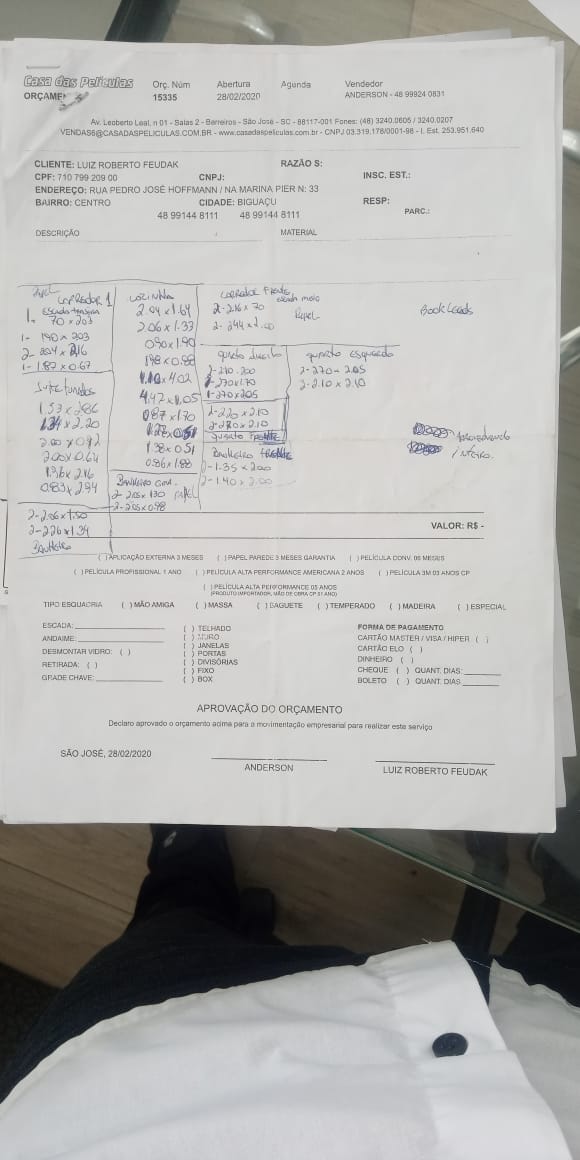 Casa das Películas
ORÇAME
Orç. Núm
15335
Abertura
28/02/2020
Agunda
Vendedor
ANDERSON - 48 99924 0831
Av. Leoberto Leal, n 01 - Salas 2 - Barreiros - São José - SC - 88117-001 Fones: (48) 3240.0605 / 3240.0207
VENDAS6@CASADASPELICULAS.COM.BR - www.casadaspeliculas.com.br - CNPJ 03.319.178/0001-98 - I. Est. 253.951.640
CLIENTE: LUIZ ROBERTO FEUDAK
RAZÃO S:
CPF: 710 799 209 00
CNPJ:
INSC. EST.:
ENDEREÇO: RUA PEDRO JOSÉ HOFFMANN / NA MARINA PIER N: 33
BAIRRO: CENTRO
CIDADE: BIGUAÇU
RESP:
48 99144 8111 48 99144 8111
PARC.:
DESCRIÇÃO
MATERIAL
Papel
CORREDOR 1
1- 70 x 203
1- 190 x 203
2- 204 x 216
1- 1.87 x 0.67
1.53 x 286
1.34 x 2.20
2.00 x 0.92
2.00 x 0.64
1.96 x 2.16
0.83 x 2.94
2-2.06 x 1.50
2-2.26 x 1.34
Banheiro
COZINHA
2.04 x 1.64
2.06 x 1.33
090 x 1.90
198 x 0.88
1.10 x 4.02
4.47 x 1.05
087 x 1.70
1.38 x 0.51
0.86 x 1.88
2- 2.05 x 1.30 papel
2- 2.05 x 0.98
CORREDOR Frente
2-2.16 x 70
Papel
2- 244 x 2.00
quarto direito
2-210.200
1-270 x 1.70
1-270 x 205
2-220 x 2.10
2-270 x 2.10
quarto FRENTE
Banheiro FRENTE
2-1.35 x 200
2-1.40 x 2.00
quarto Esquerdo
2-270 - 2.05
2-2.10 x 2.10
inteiro.
VALOR: R$ -
( ) APLICAÇÃO EXTERNA 3 MESES ( ) PAPEL PAREDE 3 MESES GARANTIA ( ) PELÍCULA CONV. 06 MESES
( ) PELÍCULA PROFISSIONAL 1 ANO ( ) PELÍCULAS ALTA PERFORMANCE AMERICANA 2 ANOS ( ) PELÍCULA 3M 03 ANOS CP
( ) PELÍCULA ALTA PERFORMANCE 05 ANOS
(PRODUTO IMPORTADOR, MÃO DE OBRA CP 01 ANO)
TIPO ESQUADRIA ( ) MÃO AMIGA ( ) MASSA ( ) BAGUETE ( ) TEMPERADO ( ) MADEIRA ( ) ESPECIAL
ESCADA:
ANDAIME:
DESMONTAR VIDRO: ( )
RETIRADA: ( )
GRADE CHAVE:
( ) TELHADO
( ) MURO
( ) JANELAS
( ) PORTAS
( ) DIVISÓRIAS
( ) FIXO
( ) BOX
FORMA DE PAGAMENTO
CARTÃO MASTER / VISA / HIPER ( )
CARTÃO ELO ( )
DINHEIRO ( )
CHEQUE ( ) QUANT. DIAS:
BOLETO ( ) QUANT. DIAS
APROVAÇÃO DO ORÇAMENTO
Declaro aprovado o orçamento acima para a movimentação empresarial para realizar este serviço
SÃO JOSÉ, 28/02/2020
ANDERSON
LUIZ ROBERTO FEUDAK